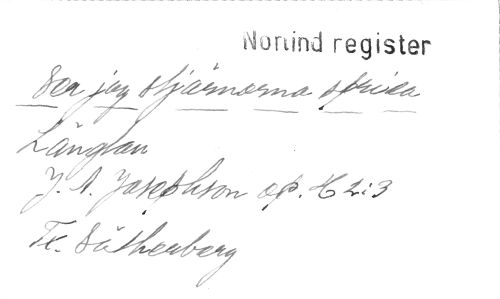 Nonind register
Ser jag stjärnorna sprida
Längtan
J. A. Josephson op. 42:3
Tx. Sätherberg